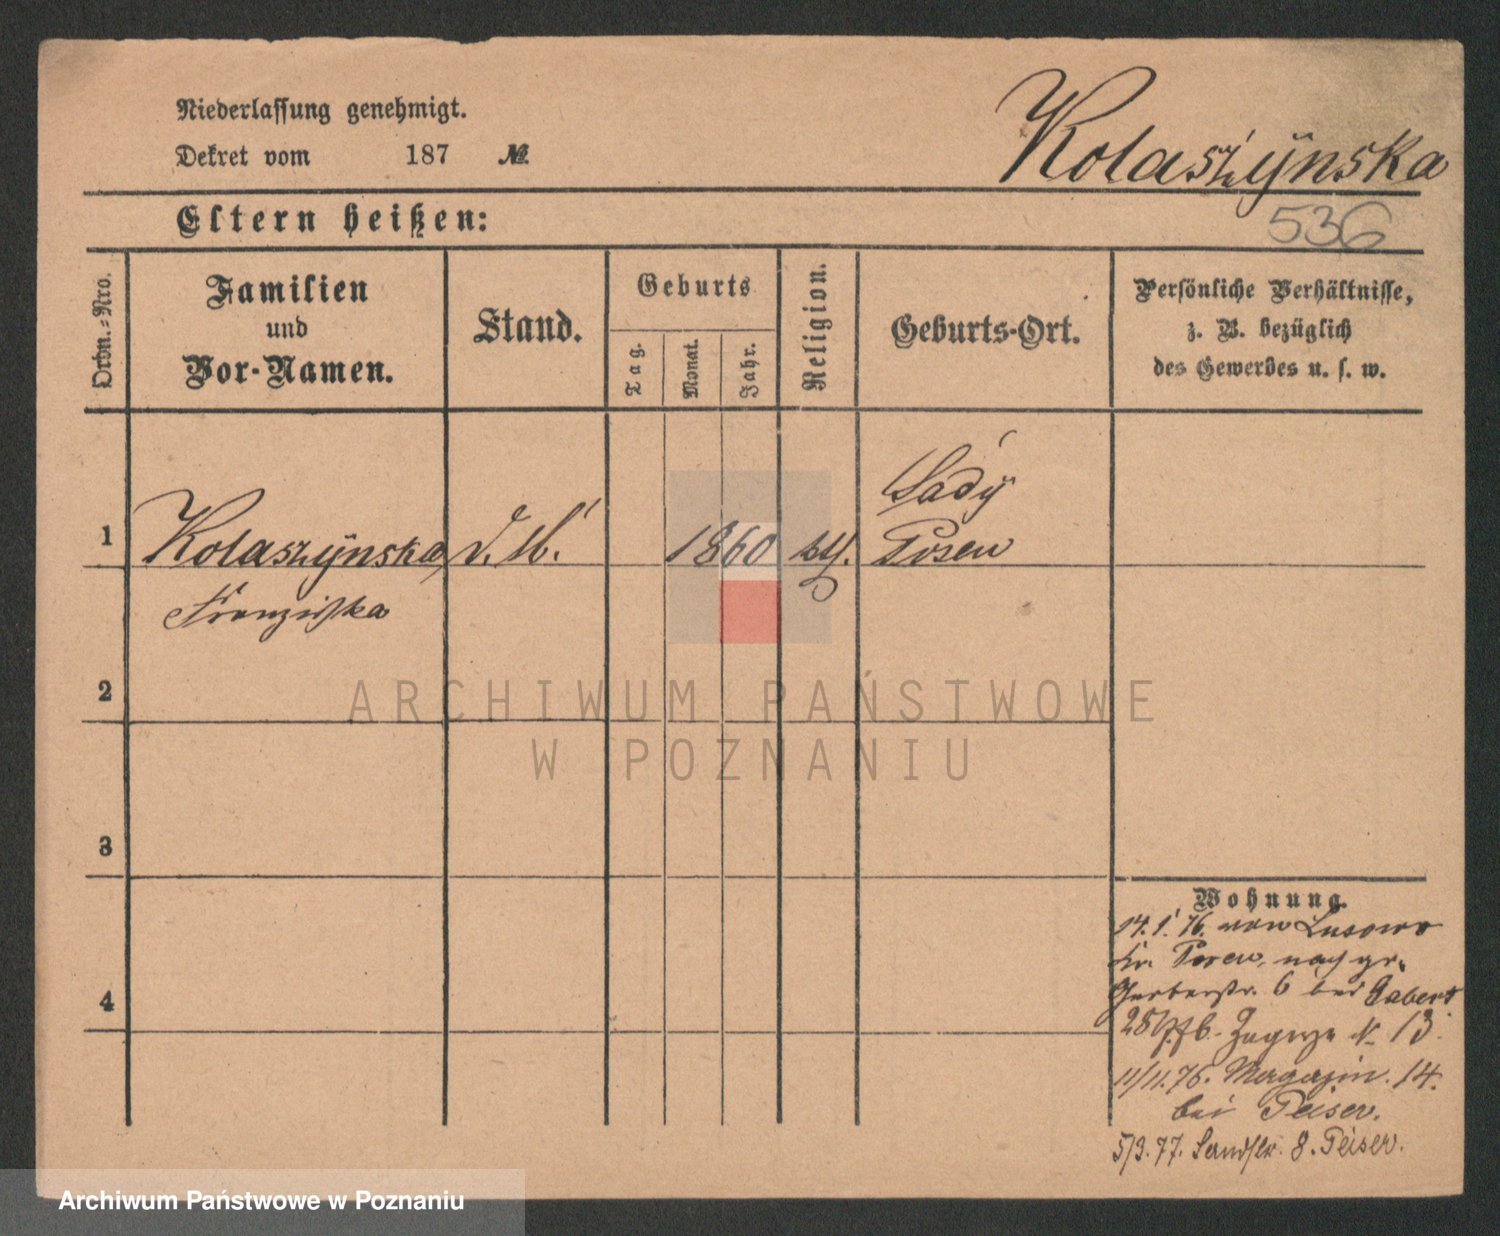 Niederlassung genehmigt.
Dekret vom 187 №
Kolaszÿnska
536
Eltern heißen:
Ordn.-Nro.
Familien
und
Vor-Namen.
Stand.
Geburts
Tag.
Monat.
Jahr.
Religion.
Geburts-Ort.
Persönliche Verhältnisse,
z. B. bezüglich
des Gewerbes u. s. w.
1
Kolaszÿnska,
Franziska
d. M.
1860
kth.
Sadÿ
Posen
2
3
4
Wohnung.
14. 1. 76. von Lusowo
Kr. Posen, nach gr.
Gerberstr. 6 bei Gabert
Zagorze № 13.
11/11. 76. Magazin. 14.
bei Peiser.
5/3. 77. Sandstr. 8. Peiser.
ARCHIWUM PAŃSTWOWE
W POZNANIU
Archiwum Państwowe w Poznaniu